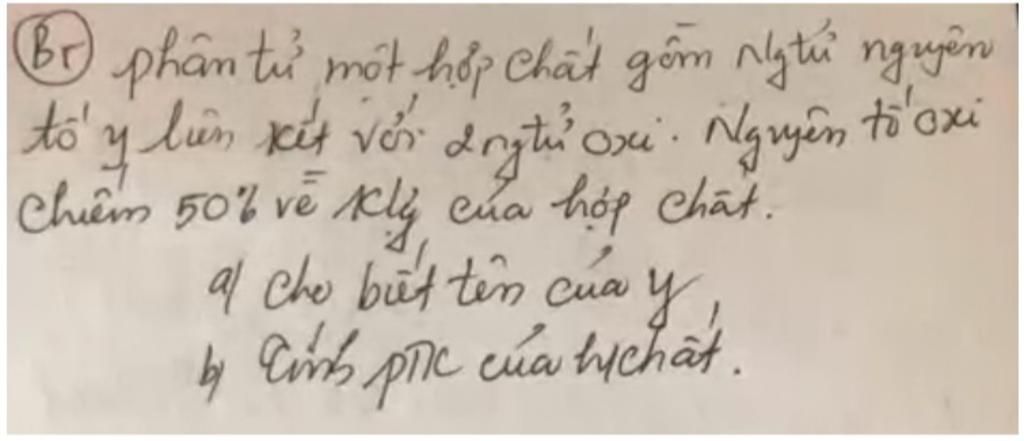 Br phân tử một hợp chất gồm Ngtử nguyên
tố y liên kết với 2 ngtử oxi. Nguyên tố oxi
chiếm 50% về klg của hợp chất.
a) cho biết tên của y
b) Tính PTK của h/chất.